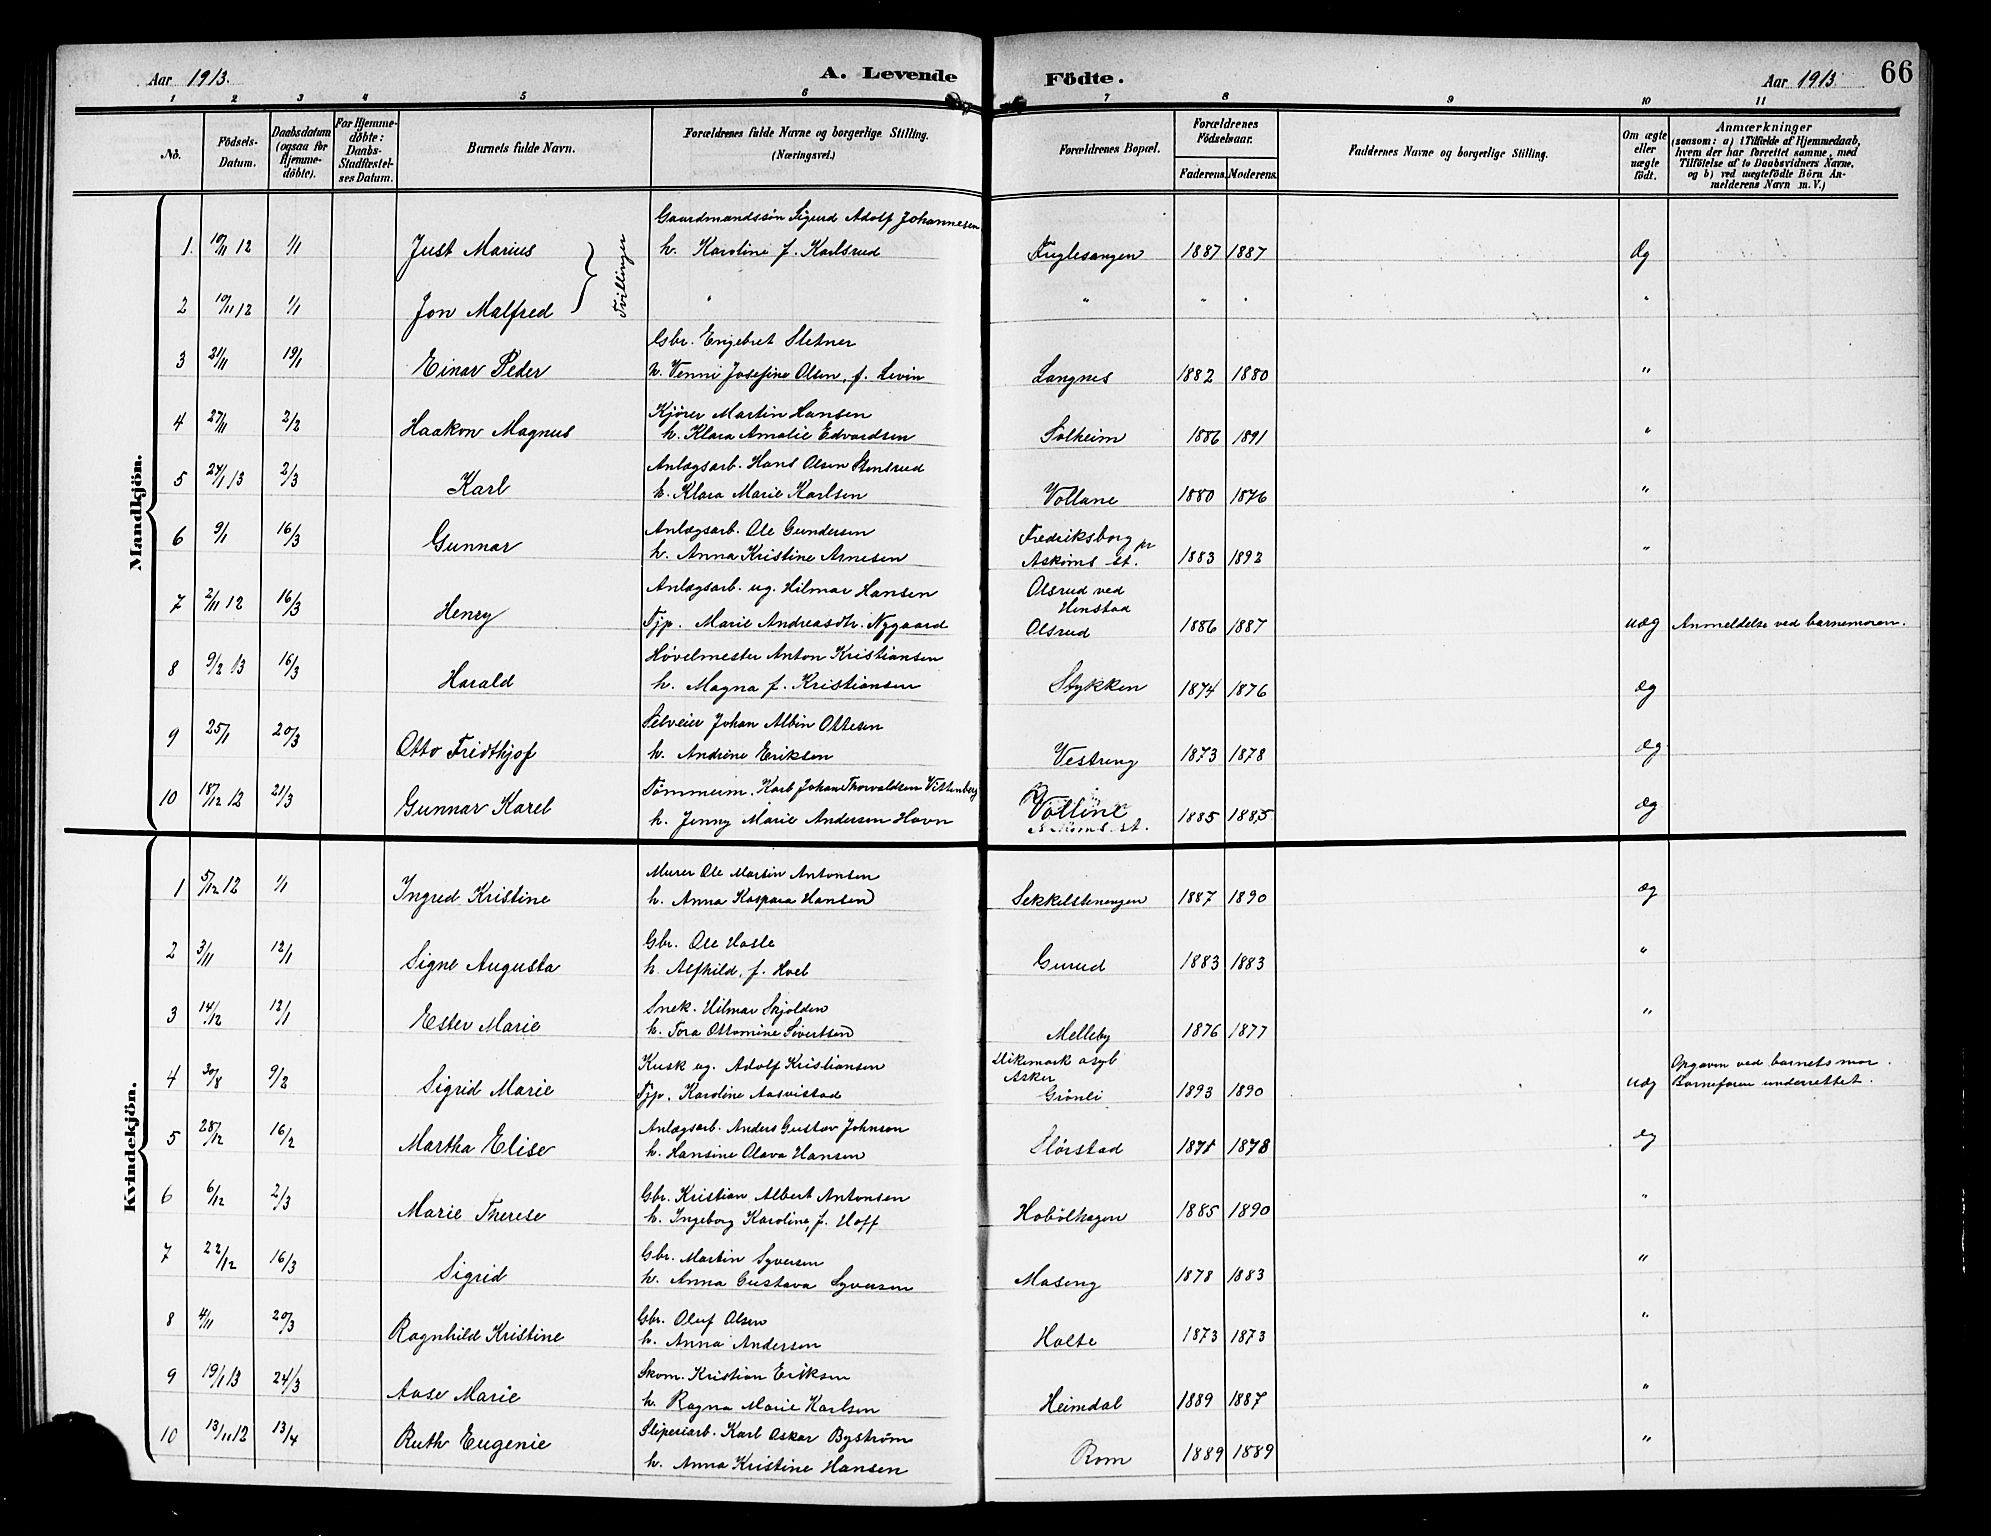 Aar 1913.
A. Levende Födte.
Aar 1913.
66
1 2 3 4 5 6 7 8 9 10 11
No.
Födsels-Datum.
Daabsdatum (ogsaa for Hjemmedöbte).
For Hjemmedöbte: Daabs-Stadfæstelses Datum.
Barnets fulde Navn.
Forældrenes fulde Navne og borgerlige Stilling. (Næringsvei.)
Forældrenes Bopæl.
Forældrenes Födselsaar.
Faderens. Moderens.
Faddernes Navne og borgerlige Stilling.
Om ægte eller uægte födt.
Anmærkninger
(saasom: a) i Tilfælde af Hjemmedaab, hvem der har forrettet samme, med Tilföielse af to Daabsvidners Navne, og b) ved uægtefödte Börn Anmelderens Navn m. V.)
Mandkjön.
Gaardmandssøn Sigurd Adolf Johannesen
1. 10/11 12 1/1 Just Marius h. Karoline f. Karlsrud Fuglesangen 1887 1887 Æg
Tvillinger
2 10/11 12 1/1 Jon Malfred " " " " "
Gbr. Engebret Sletner
3 21/11 19/1 Einar Peder h. Venni Josefine Olsen, f. Levin Langnes 1882 1880 "
Kjører Martin Hansen
4 27/11 2/2 Haakon Magnus h. Klara Amalie Edvardsen Solheim 1886 1891 "
Anlægsarb. Hans Olsen Stensrud
5 24/1 13 2/3 Karl h. Klara Marie Karlsen Vollane 1880 1876 "
Anlægsarb. Ole Gundersen Fredriksborg pr
6 9/1 16/3 Gunnar h. Anna Kristine Arnesen Askims st. 1883 1892 "
Anlægsarb. ug. Hilmar Hansen Olsrud ved Henstad
7 2/11 12 16/3 Henry Tjp. Marie Andreasdtr. Nygaard Olsrud 1886 1887 uæg Anmeldelse ved barnemoren.
Høvelmester Anton Kristiansen
8 9/2 13 16/3 Harald h. Magna f. Kristiansen Stykken 1874 1876 æg
Selveier Johan Albin Ottesen
9 25/1 20/3 Otto Fridthjof h. Andrine Eriksen Vestreng 1873 1878 æg
Tømmerm. Karl Johan Thorvaldsen Vittenberg
10 18/12 12 21/3 Gunnar Karel h. Jenny Marie Andersen Havn Volline st. 1885 1885 æg
Kvindekjön.
Murer Ole Martin Antonsen
1 5/12 12 1/1 Ingrid Kristine h. Anna Kaspara Hansen Sekkelstenengen 1887 1890 æg
Gbr. Ole Hasle
2 3/11 12/1 Signe Augusta h. Alfhild, f. Hvel Gurud 1883 1883 "
Snek. Hilmar Skjolden
3 14/12 12/1 Ester Marie h. Tora Ottomine Sivertsen Melleby 1876 1877 "
Kusk ug. Adolf Kristiansen Dikemark asyl Asker Opgaven ved barnets mor.
4 30/8 9/2 Sigrid Marie Tjp. Karoline Aasvistad Grønli 1893 1890 uæg Barnefaren underrettet.
Anlægsarb. Anders Gustav Johnson
5 28/12 16/2 Martha Elise h. Hansine Olava Hansen Slorstad 1878 æg
Gbr. Kristian Albert Antonsen
6 6/12 2/3 Marie Therese h. Ingeborg Karoline, f. Hoff Hobølhagen 1885 1890 "
Gbr. Martin Syversen
7 22/12 16/3 Sigrid h. Anna Gustava Syversen Maseng 1878 1883 "
Gbr. Oluf Olsen
8 4/11 20/3 Ragnhild Kristine h. Anna Andersen Holte 1873 1873 "
Skom. Kristian Eriksen
9 19/1 13 24/3 Aase Marie h. Ragna Marie Karlsen Heimdal 1889 1887 "
Sliperiarb. Karl Oskar Byström
10 13/11 12 13/4 Ruth Eugenie h. Anna Kristine Hansen Rom 1889 1889 "